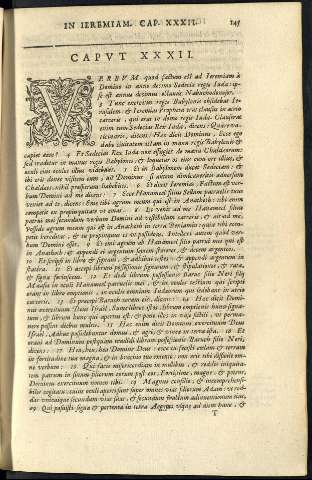 IN IEREMIAM. CAP. XXXII. 145
CAPVT XXXII.
VERBVM quod factum est ad Ieremiam à
Domino in anno decimo Sedeciæ regis Iuda: ip-
se est annus decimus octauus Nabuchodonosor.
2 Tunc exercitus regis Babylonis obsidebat Ie-
rusalem: & Ieremias Propheta erat clausus in atrio
carceris, qui erat in domo regis Iuda. Clauserat
enim eum Sedecias Rex Iuda, dicens: Quare va-
ticinaris, dicens: Hæc dicit Dominus: Ecce ego
dabo ciuitatem istam in manu regis Babylonis &
capiet eam? 4 Et Sedecias Rex Iuda non effugiet de manu Chaldæorum:
Sed tradetur in manus regis Babylonis, & loquetur os eius cum ore illius, &
oculi eius oculos illius videbunt. 5 Et in Babylonem ducet Sedeciam: et
ibi erit donec visitem eum, ait Dominus
Chaldæos, nihil prosperum habebitis. 6 Et dixit Ieremias: Factum est ver-
bum Domini ad me, dicens: 7 Ecce Hanameel filius Sellum patruelis tuus
veniet ad te, dicens: Eme tibi agrum meum qui est in Anathoth: tibi enim
competit ex propinquitate vt emas. 8 Et venit ad me Hanameel filius
patrui mei secundum verbum Domini ad vestibulum carceris, & ait ad me,
Posside agrum meum qui est in Anathoth in terra Beniamin: quia tibi com-
petit hæreditas, & tu propinquus es vt possideas. Intellexi autem quod ver-
bum Domini esset. 9 Et emi agrum ab Hanameel filio patrui mei qui est
in Anathoth: & appendi ei argentum septem stateres, & decem argenteos.
10 Et scripsi in libro & signaui, & adhibui testes: & appendi argentum in
statera. 11 Et accepi librum possessionis signatum, & stipulationes, & rata,
& signa forinsecus. 12 Et dedi librum possessionis Baruch filio Neri filij
Maasiæ in oculis Hanameel patruelis mei, & in oculis testium qui scripti
erant in libro emptionis, & in oculis omnium Iudæorum qui sedebant in atrio
carceris. 13 Et præcepi Baruch coram eis, dicens: 14 Hæc dicit Domi-
nus exercituum Deus Israel: Sume libros istos, librum emptionis hunc signa-
tum, & librum hunc qui apertus est: & pone illos in vase fictili, vt perma-
nere possint diebus multis. 15 Hæc enim dicit Dominus exercituum Deus
Israel: Adhuc possidebuntur domus, & agri, & vineæ in terra ista. 16 Et
oraui ad Dominum postquam tradidi librum possessionis Baruch filio Neri,
dicens: 17 Heu, heu, heu Domine Deus: ecce tu fecisti cælum & terram
in fortitudine tua magna, & in brachio tuo extento: non erit tibi difficile om-
ne verbum: 18 Qui facis misericordiam in millibus, & reddis iniquita-
tem patrum in sinum filiorum eorum post eos: Fortissime, magne, & potens,
Dominus exercituum nomen tibi. 19 Magnus consilio, & incomprehensi-
bilis cogitatu: cuius oculi aperti sunt super omnes vias filiorum Adam: vt red-
das vnicuique secundum vias suas, & secundum fructum adinuentionum eius,
20 Qui posuisti signa & portenta in terra Aegypti vsque ad diem hanc, &
T